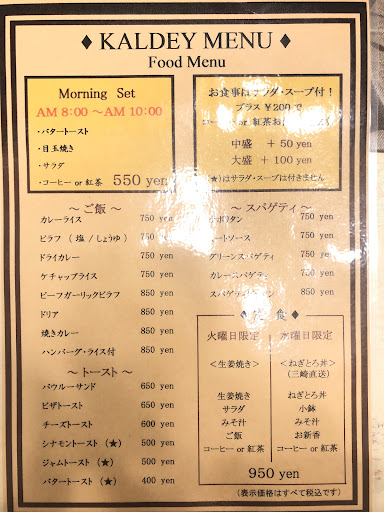 ♦ KALDEY MENU ♦
Food Menu
Morning Set
AM 8:00 ～AM 10:00
・バタートースト
・目玉焼き
・サラダ
・コーヒー or 紅茶 550 yen
お食事はサラダ・スープ付！
プラス ¥200 で
コーヒー or 紅茶
中盛 ＋ 50 yen
大盛 ＋ 100 yen
★)はサラダ・スープは付きません
～ ご飯 ～
カレーライス 750 yen
ピラフ ( 塩 / しょうゆ ) 750 yen
ドライカレー 750 yen
ケチャップライス 750 yen
ビーフガーリックピラフ 850 yen
ドリア 850 yen
焼きカレー 850 yen
ハンバーグ・ライス付 850 yen
～ トースト ～
パウルーサンド 650 yen
ピザトースト 650 yen
チーズトースト 600 yen
シナモントースト (★) 500 yen
ジャムトースト (★) 500 yen
バタートースト (★) 400 yen
～ スパゲティ ～
ポリタン 750 yen
ートソース 750 yen
グリーンスパゲティ 750 yen
カレースパゲティ 850 yen
スパゲティ 850 yen
食 ♦
火曜日限定
＜生姜焼き＞
生姜焼き
サラダ
みそ汁
ご飯
コーヒー or 紅茶
水曜日限定
＜ねぎとろ丼＞
(三崎直送)
ねぎとろ丼
小鉢
みそ汁
お新香
コーヒー or 紅茶
950 yen
(表示価格はすべて税込です)